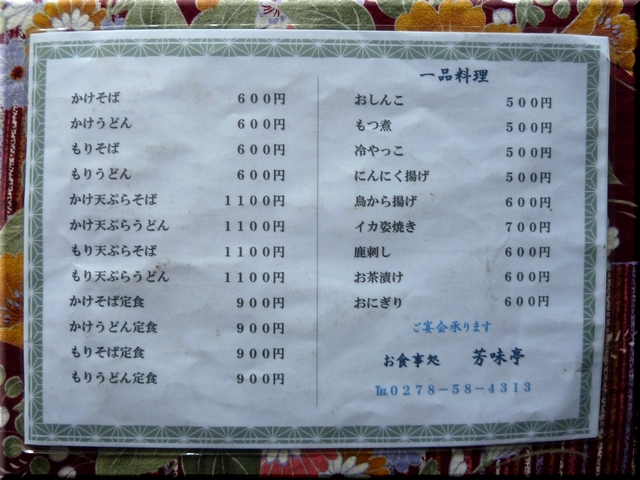 かけそば ６００円
かけうどん ６００円
もりそば ６００円
もりうどん ６００円
かけ天ぷらそば １１００円
かけ天ぷらうどん １１００円
もり天ぷらそば １１００円
もり天ぷらうどん １１００円
かけそば定食 ９００円
かけうどん定食 ９００円
もりそば定食 ９００円
もりうどん定食 ９００円
一品料理
おしんこ ５００円
もつ煮 ５００円
冷やっこ ５００円
にんにく揚げ ５００円
鳥から揚げ ６００円
イカ姿焼き ７００円
鹿刺し ６００円
お茶漬け ６００円
おにぎり ６００円
ご宴会承ります
お食事処 芳味亭
℡０２７８－５８－４３１３